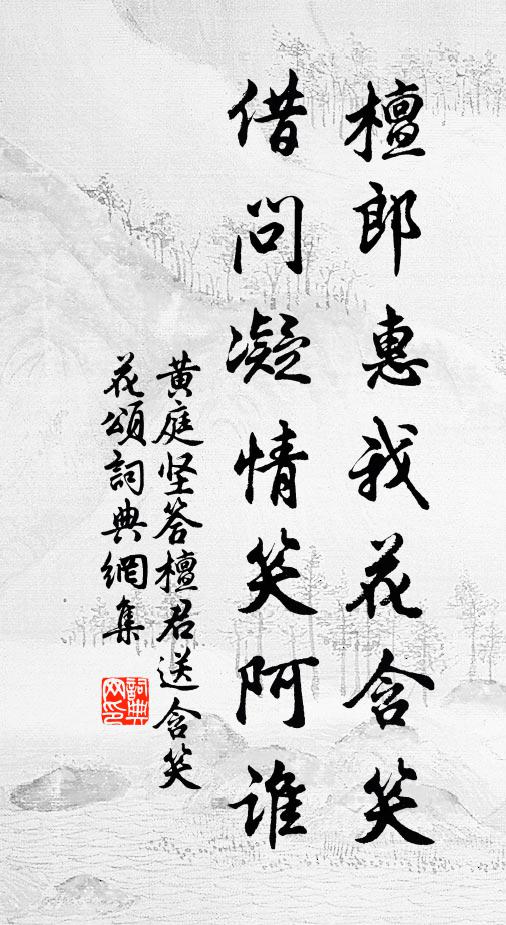 檀郎惠我花含笑
借问凝情笑阿谁
黄庭坚答檀君送含笑
花頌詞典網集
詞典网印